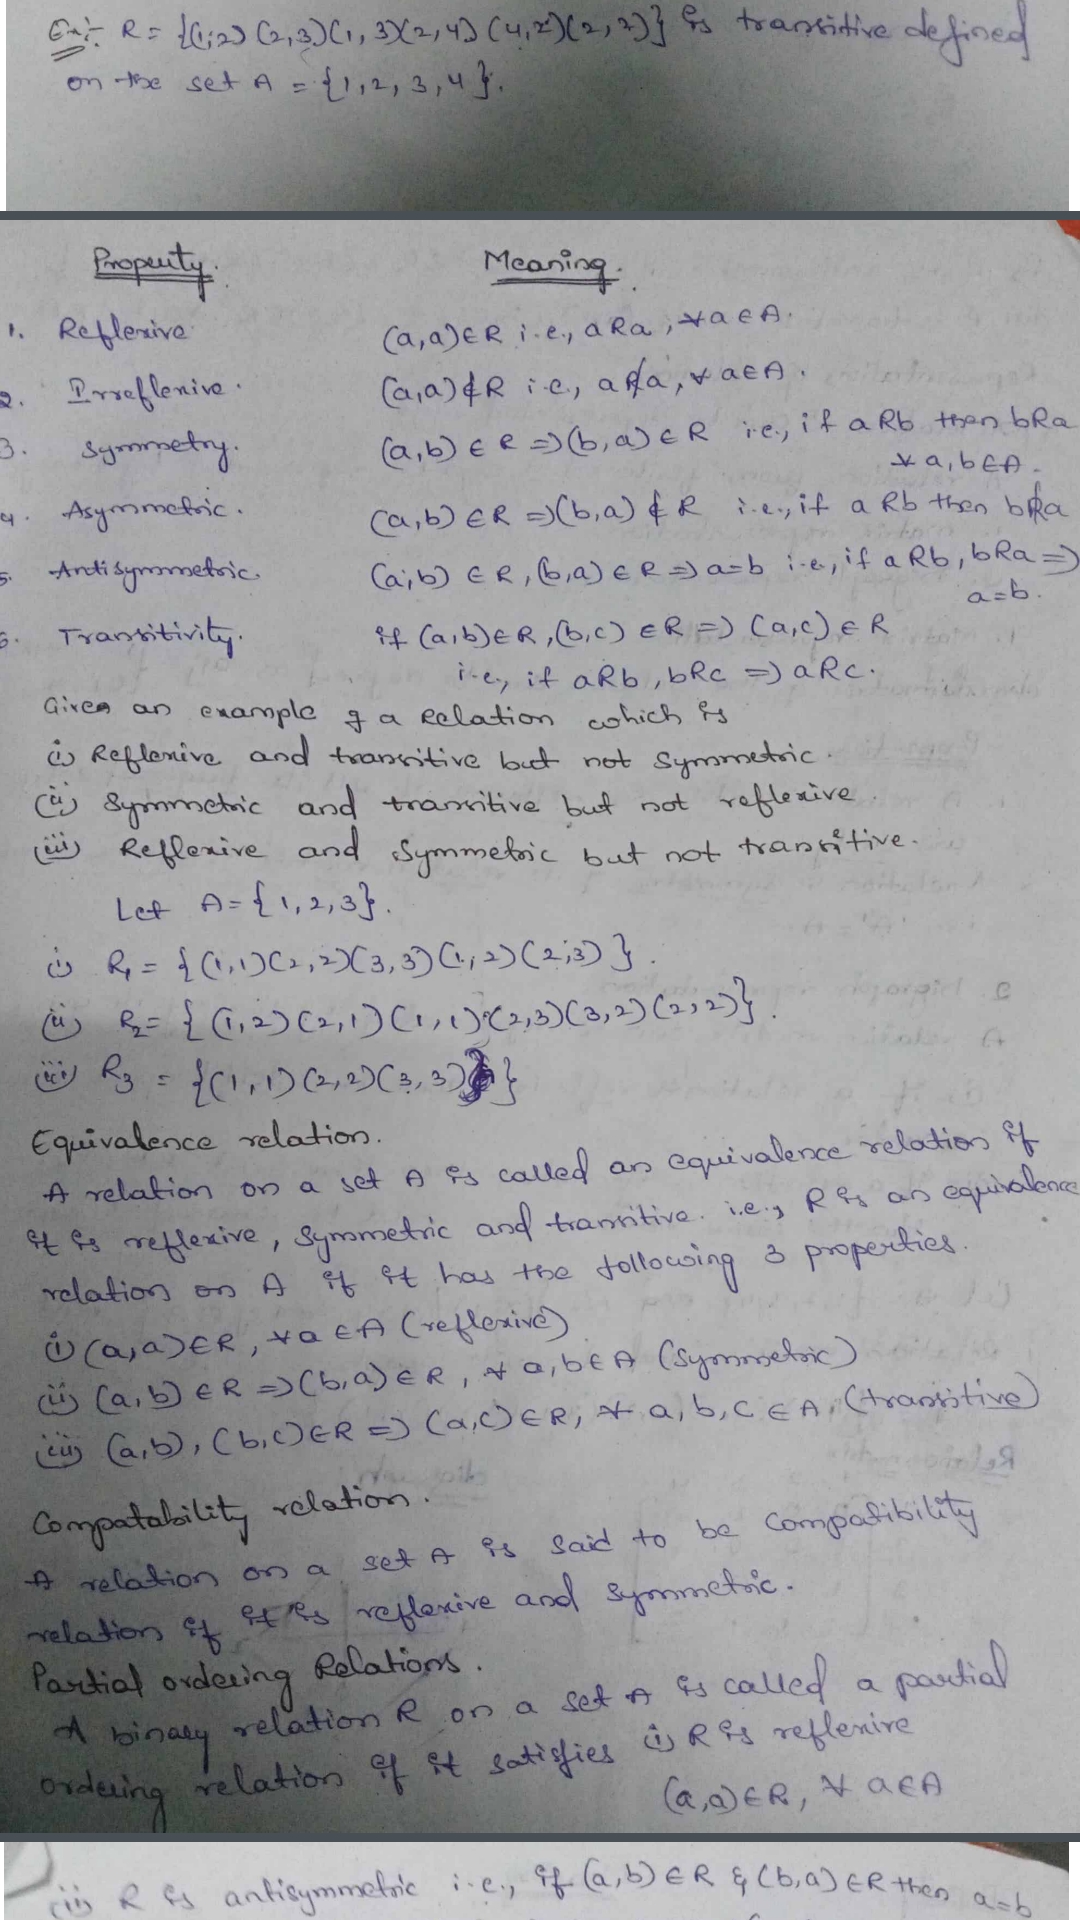 Ex:- R = {(1,2) (2,3)(1,3)(2,4) (4,2)(2,2)} is transitive defined
on the set A = {1,2,3,4}.
Property. Meaning.
1. Reflexive (a,a)∈R i.e., aRa, ∀a∈A.
2. Irreflexive. (a,a)∉R i.e., aR̸a, ∀ a∈A.
3. Symmetry. (a,b) ∈ R ⇒(b,a)∈R i.e., if aRb then bRa
∀ a,b∈A.
4. Asymmetric. (a,b) ∈R ⇒(b,a) ∉ R i.e., if aRb then bR̸a
5. Antisymmetric. (a,b) ∈R, (b,a)∈R ⇒ a=b i.e., if aRb, bRa ⇒
a=b.
6. Transitivity. if (a,b)∈R, (b,c) ∈R ⇒ (a,c) ∈ R
i.e., if aRb, bRc ⇒ aRc.
Given an example of a Relation which is
(i) Reflexive and transitive but not symmetric.
(ii) Symmetric and transitive but not reflexive.
(iii) Reflexive and symmetric but not transitive.
Let A={1,2,3}.
(i) R₁ = {(1,1)(2,2)(3,3)(1,2)(2,3)}.
(ii) R₂= {(1,2)(2,1)(1,1)(2,3)(3,2)(2,2)}.
(iii) R₃ = {(1,1)(2,2)(3,3)}
Equivalence relation.
A relation on a set A is called an equivalence relation if
it is reflexive, symmetric and transitive. i.e., R is an equivalence
relation on A if it has the following 3 properties.
(i) (a,a)∈R, ∀a∈A (reflexive)
(ii) (a,b) ∈R ⇒(b,a)∈R, ∀ a,b∈A (Symmetric)
(iii) (a,b), (b,c)∈R ⇒ (a,c)∈R, ∀ a,b,c∈A, (transitive)
Compatability relation.
A relation on a set A is said to be compatibility
relation if it is reflexive and symmetric.
Partial ordering Relations.
A binary relation R on a set A is called a partial
ordering relation if it satisfies (i) R is reflexive
(a,a)∈R, ∀ a∈A
(ii) R is antisymmetric i.e., if (a,b)∈R & (b,a)∈R then a=b